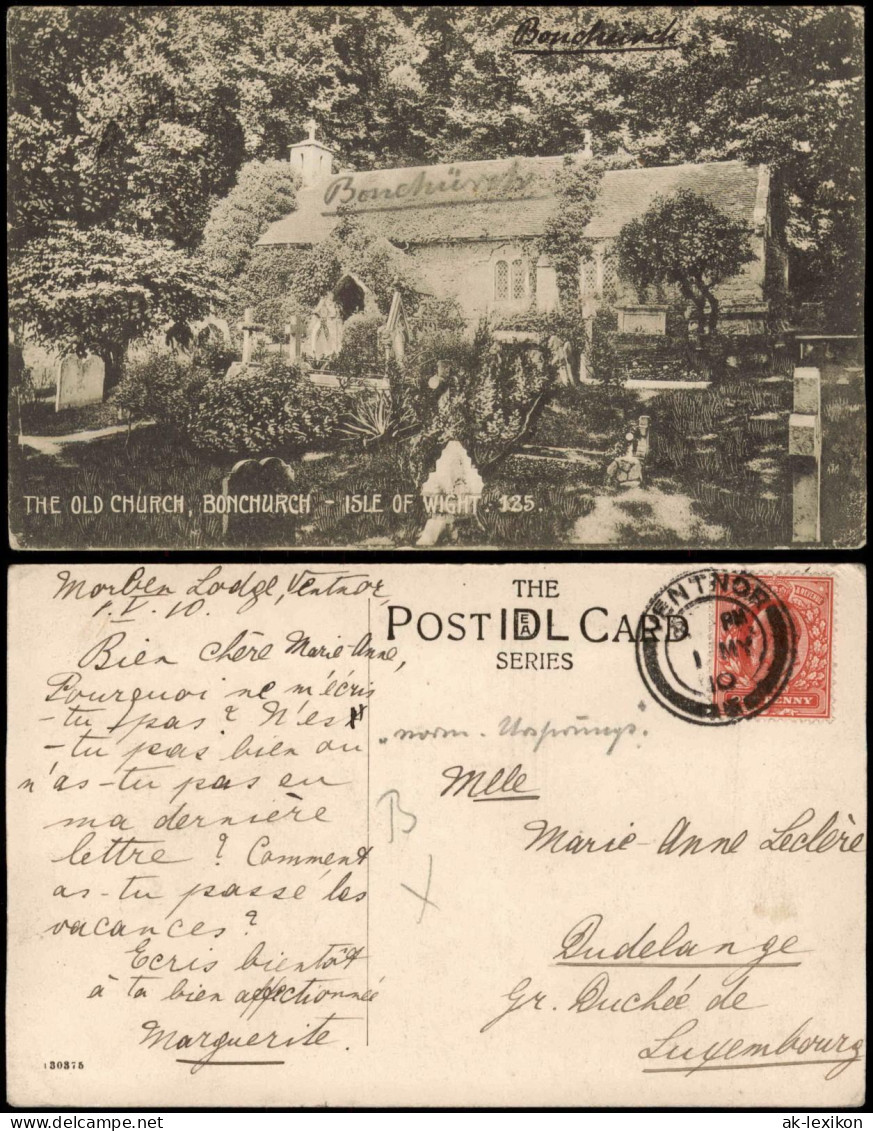 Bonchurch
Bonchürch
THE OLD CHURCH, BONCHURCH - ISLE OF WIGHT. 125.
Morven Lodge, Ventnor,
1. V. 10.
Bien chère Marie-Anne,
Pourquoi ne m'écris
-tu pas? N'es
-tu pas bien ou
n'as-tu pas eu
ma dernière
lettre? Comment
as-tu passé les
vacances?
Ecris bientôt
à ta bien affectionnée
Marguerite.
130375
THE
IDEAL
POST CARD
SERIES
VENTNOR
PM
1 MY
10
PENNY
"norm. Ursprungs."
B
X
Mlle
Marie-Anne Leclère
Dudelange
Gr. Duchée de
Luxembourg
ak-lexikon.com